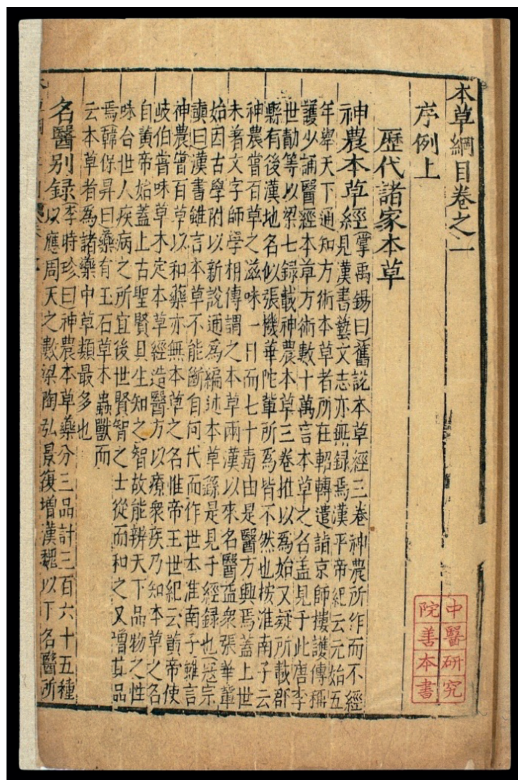 本草綱目卷之一
序例上
歷代諸家本草
神農本草經掌禹錫曰舊說本草經三卷神農所作而不經
見漢書藝文志亦無録焉漢平帝紀云元始五
年舉天下通知方術本草者所在軺轉遣詣京師摟護傳稱
護少誦醫經本草方術數十萬言本草之名蓋見于此唐李
世勣等以梁七録載神農本草三卷推以爲始又疑所載郡
縣有後漢地名似張機華陀輩所爲皆不然也按淮南子云
神農嘗百草之滋味一日而七十毒由是醫方興焉蓋上世
未著文字師學相傳謂之本草兩漢以來名醫益衆張華輩
始因古學附以新說通爲編述本草繇是見于經録也寇宗
奭曰漢書雖言本草不能斷自何代而作世本淮南子雖言
神農嘗百草以和藥亦無本草之名惟帝王世紀云黃帝使
岐伯嘗味草木定本草經造醫方以療衆疾乃知本草之名
自黃帝始蓋上古聖賢具生知之智故能辨天下品物之性
味合世人疾病之所宜後世賢智之士從而和之又增其品
焉韓保昇曰藥有玉石草木蟲獸而
云本草者爲諸藥中草類最多也
名醫别録李時珍曰神農本草藥分三品計三百六十五種
以應周天之數梁陶弘景復增漢魏以下名醫所
中醫研究
院善本書